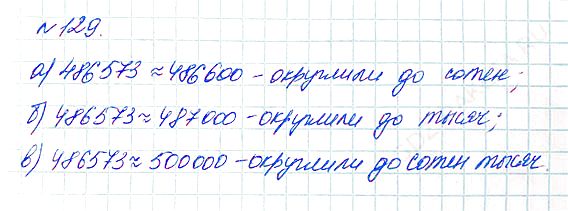 №129.
а) 486573 ≈ 486600 – округлили до сотен;
б) 486573 ≈ 487000 – округлили до тысяч;
в) 486573 ≈ 500000 – округлили до сотен тысяч.